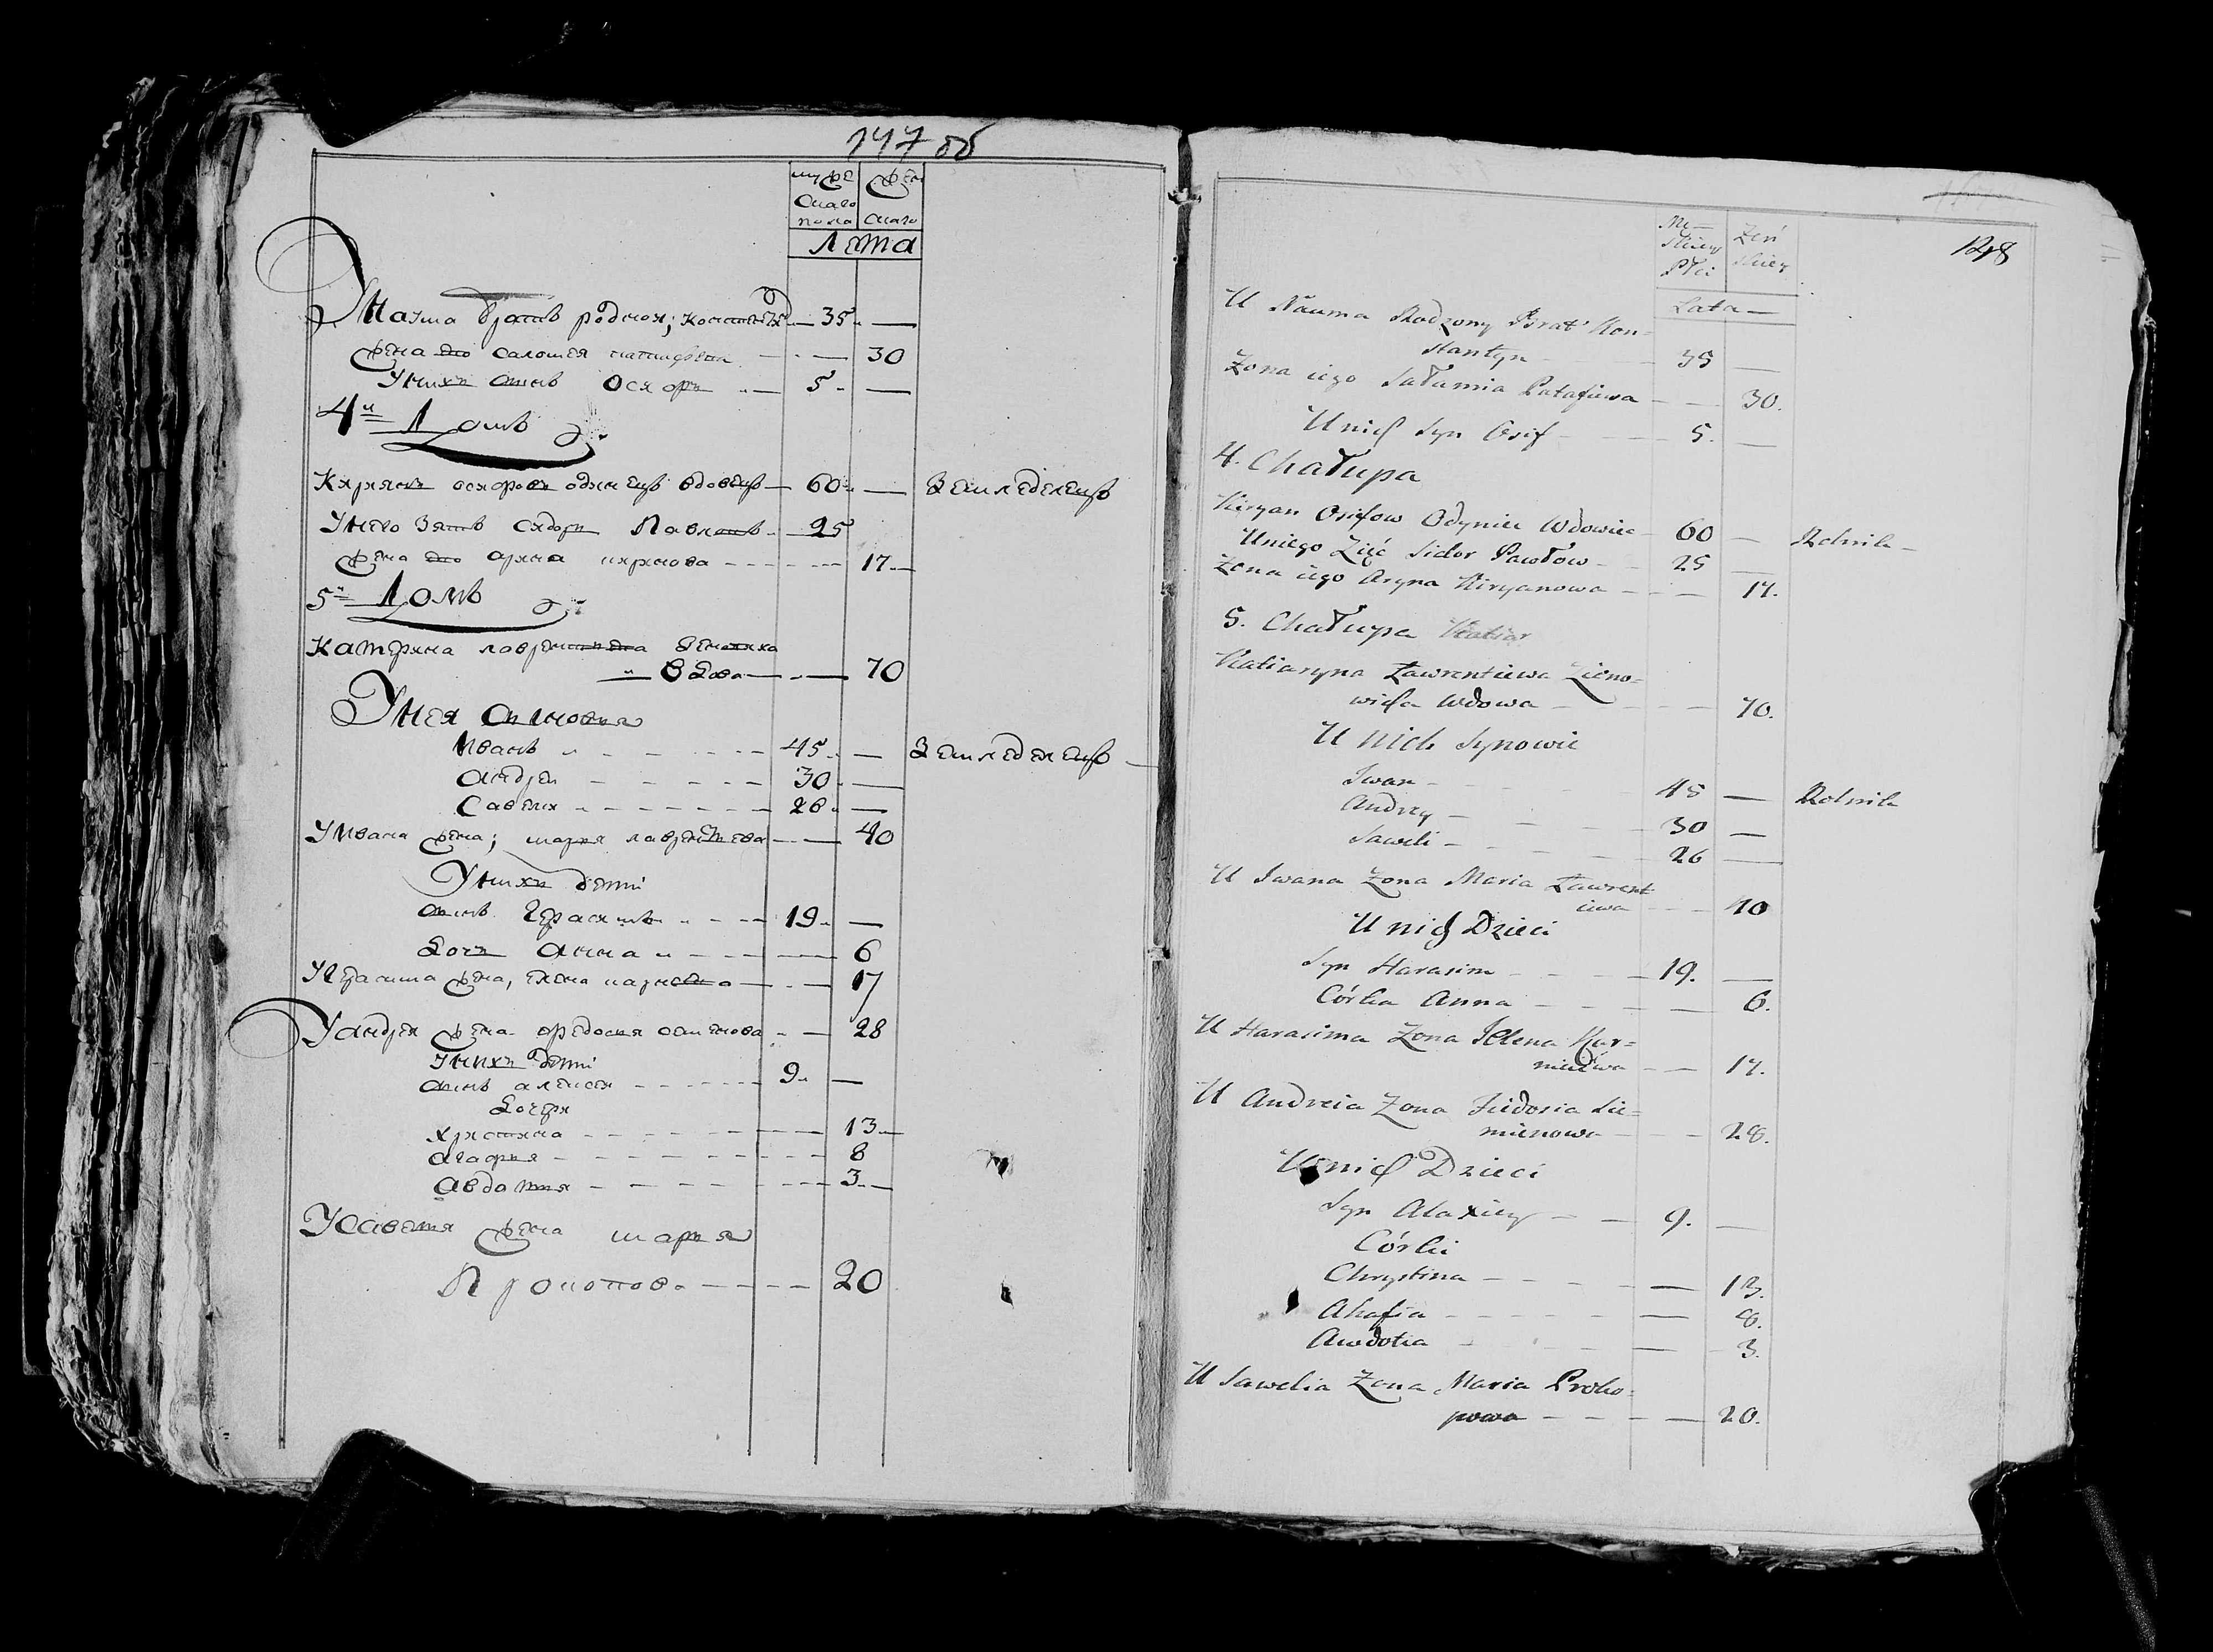 147 об
муже
скаго
пола
жен
скаго
Лета
У Наума братъ родной; Констант 35 —
жена его саломея — 30
У нихъ сынъ Осифъ — 5 —
4й Домъ
Кирианъ осифовъ один вдовецъ — 60 — Земледелецъ
У него Зять Сидоръ Павловъ — 25
жена его арина кирянова — 17 —
5й Домъ
Катерина лаврентиева
Вдова — 70
У нея Сыновья
Иванъ — 45 — Земледелецъ —
андрей — 30 —
Савелий — 26 —
У Ивана жена; марья лаврентьева — 40
У нихъ дети
сынъ Герасимъ — 19 —
Дочь Анна — 6
У Герасима жена, елена — 17
У андрея жена федосия семенова — 28
У нихъ дети
сынъ алексей — 9 —
Дочери
христина — 13 —
агафия — 8
авдотия — 3 —
У Савелия жена марья
Прокопова — 20
148
Mę—
skiey
Płci
Żeń
skiey
Lata —
U Nauma Rodzony Brat Kon=
stantyn — 35 —
Zona iego Sałumia — 30.
U nich Syn Osif — 5. —
4. Chałupa
Kiryan Osifow Odyniec Wdowiec — 60 — Rolnik —
U niego Zięć Sidor Pawłow — 25 —
Zona iego Aryna Kiryanowa — 17.
5. Chałupa
Katiaryna Ławrentiewa Zieno=
wicha Wdowa — 70.
U Nich Synowie
Iwan — 45 — Rolnik
Andrey — 30 —
Saweli — 26 —
U Iwana Zona Maria Ławrent
iewa — 40
U nich Dzieci
Syn Harasim — 19. —
Córka Anna — 6.
U Harasima Zona Jelena Kar=
— 17.
U Andreia Zona Fiedosia Sie=
mienowa — 28.
U nich Dzieci
Syn Alaxiey — 9. —
Córki
Chrystina — 13.
Ahafia — 8.
Awdotia — 3.
U Sawelia Zona Maria Proko=
powa — 20.